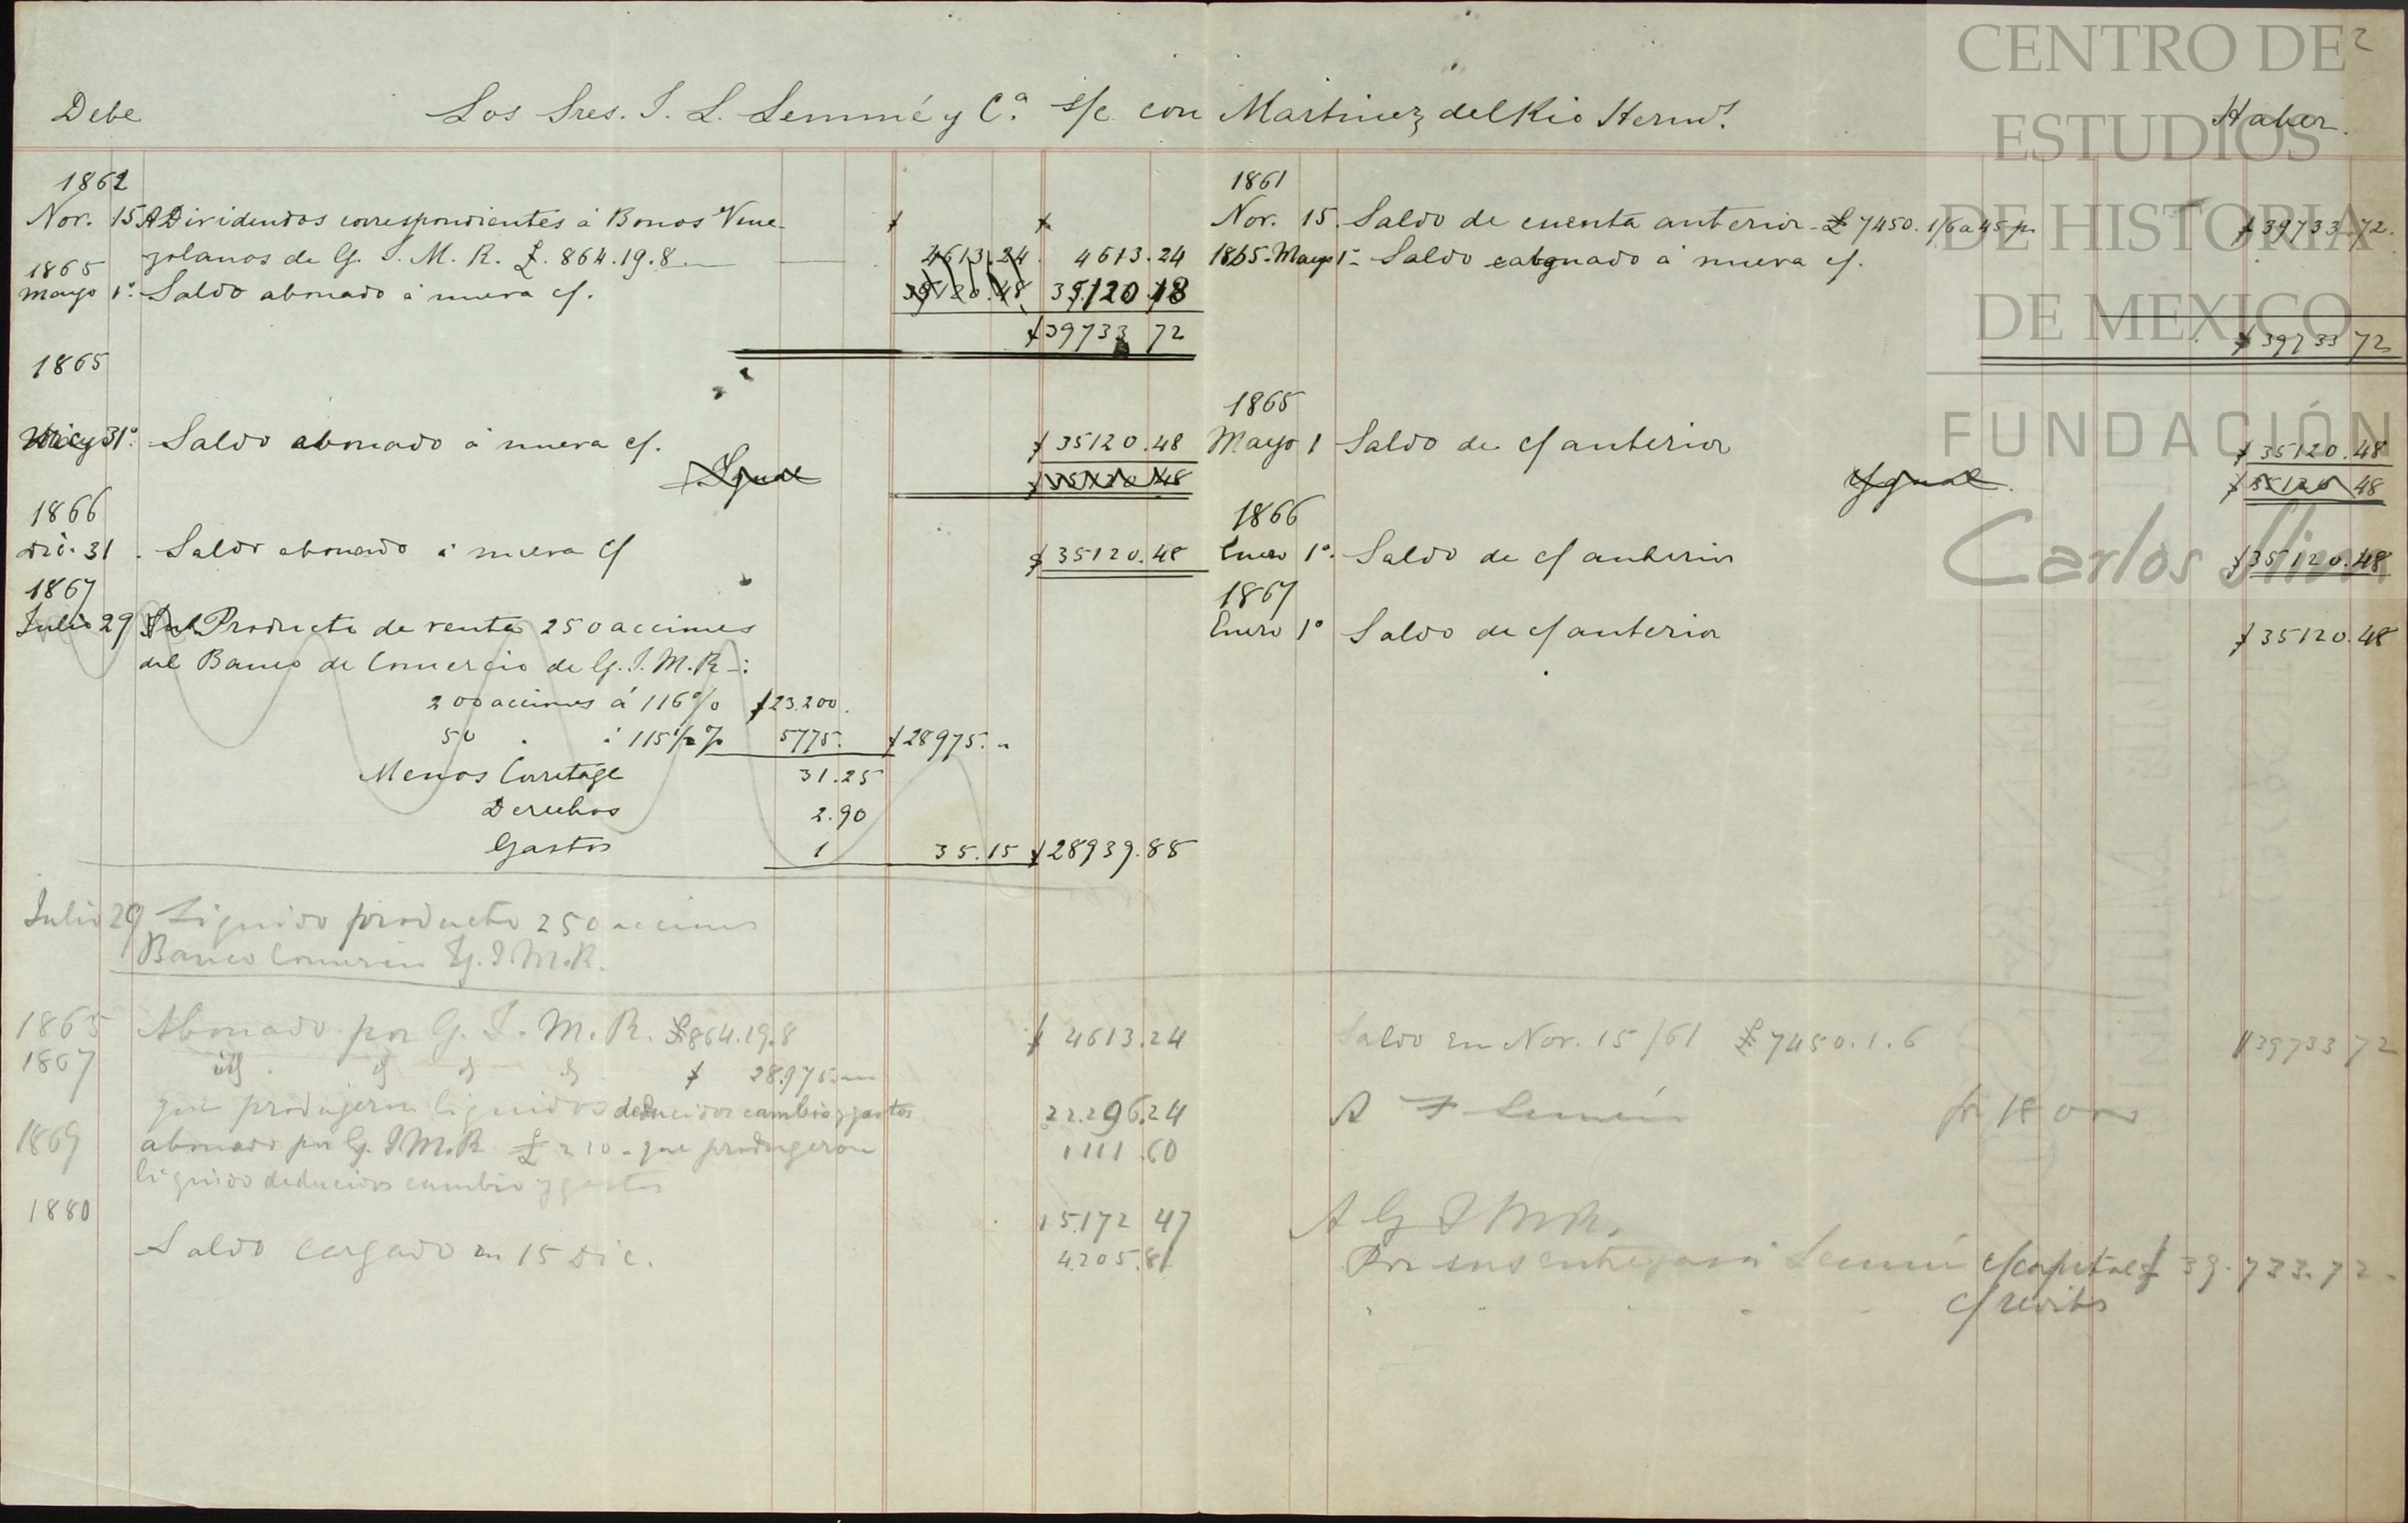 2
Debe Los Sres. I. L. Lemmé y Cª s/c con Martinez del Rio Hermˢ. Haber.
1862
Nov. 15 A Dividendos correspondientes á Bonos Vene-
zolanos de G. I. M. R. £. 864.19.8. 4613.24 4613.24
1865
Mayo 1º. Saldo abonado á nueva c/. 35120.48 35120 48
$39733 72
1865
31º. Saldo abonado á nueva c/. $35120.48
Igual $35120 48
1866
Dic. 31. Saldo abonado á nueva c/ $35120.48
1867
Julio 29 Producto de venta 250 acciones
del Banco de Comercio de G. I. M. R.:
200 acciones á 116 % $23.200.
50 " á 115 1/2 % 5775. $28975. "
Menos Corretage 31.25
Derechos 2.90
Gastos 1 35.15 $28939.85
Julio 29 Liquido producto 250 acciones
Banco Comercio G. I. M. R.
1865 Abonado por G. I. M. R. £864.19.8 $4613.24
1867 $ 28.975.
que produjeron liquidos deducidos cambio y gastos 22.296.24
1869 abonado por G. I. M. R. £ 210 - que produgeron 1111.60
liquido deducidos cambio y gastos
1880 15.172 47
Saldo cargado en 15 Dic. 4.205.81
1861
Nov. 15. Saldo de cuenta anterior - £ 7450. 1/6 a 45 p. $39733.72.
1865. Mayo 1º - Saldo á nueva c/.
$39733 72
1865
Mayo 1 Saldo de c/ anterior $35120.48
Ygual. $35120 48
1866
Enero 1º. Saldo de c/ anterior $35120.48
1867
Enero 1º Saldo de c/ anterior $35120.48
Saldo en Nov. 15/61 £7450.1.6 $39733 72
A
A G I M R.
Por sus c/capital $39.733.72
c/ reditos
CENTRO DE
ESTUDIOS
DE HISTORIA
DE MEXICO
FUNDACIÓN
Carlos Slim